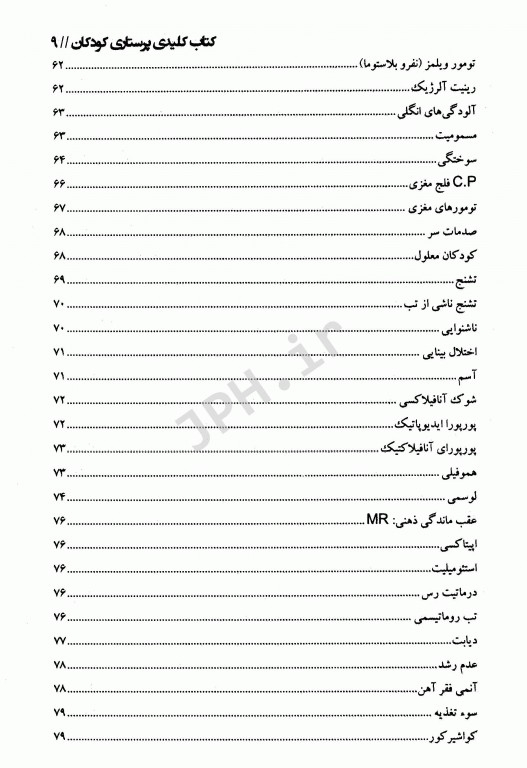 کتاب کلیدی پرستاری کودکان // ۹
تومور ویلمز (نفرو بلاستوما) ........ ۶۲
رینیت آلرژیک ........ ۶۲
آلودگی‌های انگلی ........ ۶۳
مسمومیت ........ ۶۳
سوختگی ........ ۶۴
C.P فلج مغزی ........ ۶۶
تومورهای مغزی ........ ۶۷
صدمات سر ........ ۶۸
کودکان معلول ........ ۶۸
تشنج ........ ۶۹
تشنج ناشی از تب ........ ۷۰
ناشنوایی ........ ۷۰
اختلال بینایی ........ ۷۱
آسم ........ ۷۱
شوک آنافیلاکسی ........ ۷۲
پورپورا ایدیوپاتیک ........ ۷۲
پورپورای آنافیلاکتیک ........ ۷۳
هموفیلی ........ ۷۳
لوسمی ........ ۷۴
عقب ماندگی ذهنی: MR ........ ۷۶
اپیتاکسی ........ ۷۶
استئومیلیت ........ ۷۶
درماتیت رس ........ ۷۶
تب روماتیسمی ........ ۷۶
دیابت ........ ۷۷
عدم رشد ........ ۷۸
آنمی فقر آهن ........ ۷۸
سوء تغذیه ........ ۷۹
کواشیرکور ........ ۷۹
JPH.ir